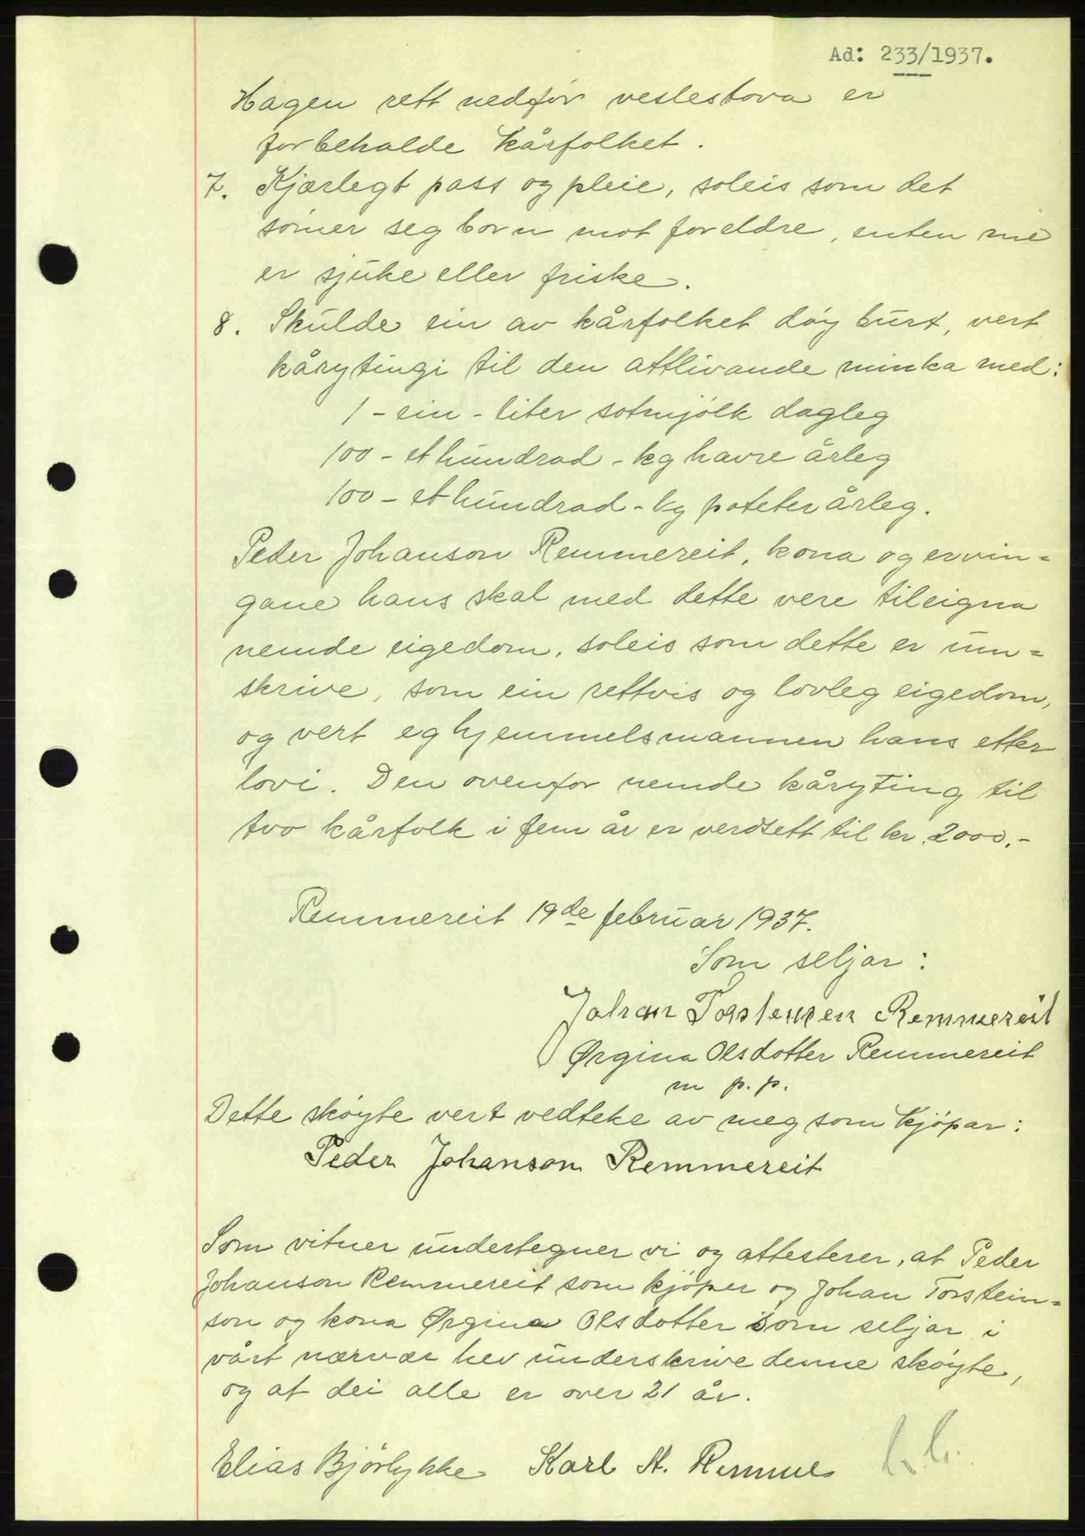 Ad: 233/1937.
Hagen rett nedfor veslestova er
forbehalde kårfolket.
7. Kjærlegt pass og pleie, soleis som det
sömer seg born mot foreldre, enten me
er sjuke eller friske.
8. Skulde ein av kårfolket döy burt, vert
kårytingi til den attlivande minka med:
1 - ein - liter sötmjölk dagleg
100 - et hundrad - kg havre årleg
100 - et hundrad - kg poteter årleg.
Peder Johanson Remmereit, kona og ervin=
gane hans skal med dette vere tileigna
nemde eigedom, soleis som dette er um=
skrive, som ein rettvis og lovleg eigedom,
og vert eg hjemmelsmannen hans etter
lovi. Den ovenfor nemde kåryting til
tvo kårfolk i fem år er verdsett til kr. 2000.-
Remmereit 19de februar 1937.
Som seljar:
Johan Torsteinsen Remmereit
Ørgina Olsdotter Remmereit
m p. p.
Dette sköyte vert vedteke av meg som kjöpar:
Peder Johanson Remmereit
Som vitner undertegner vi og attesterer, at Peder
Johanson Remmereit som kjöper og Johan Torstein=
son og kona Ørgina Olsdotter som seljar i
vårt nærvær hev underskrive denne sköyte,
og at dei alle er over 21 år.
Elias Bjørlykke Karl A.